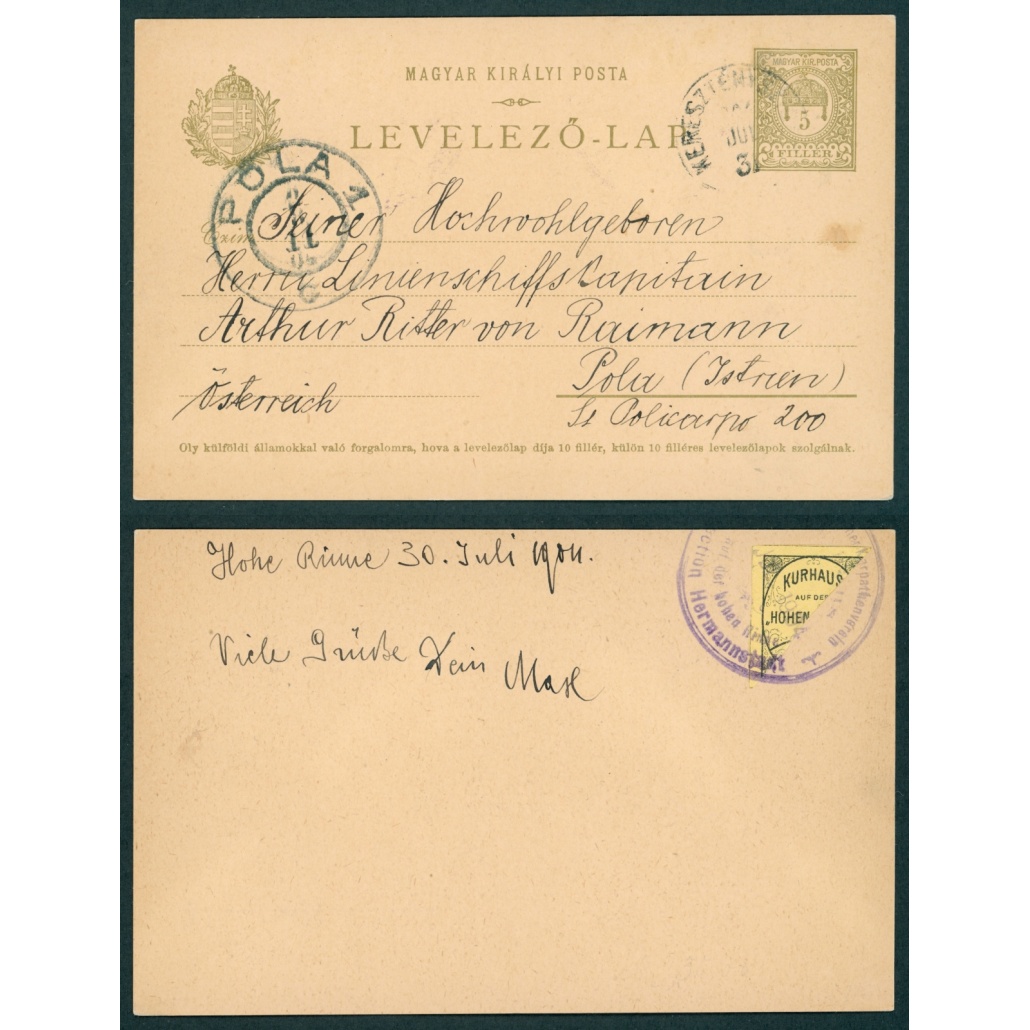 MAGYAR KIRÁLYI POSTA
LEVELEZŐ-LAP
MAGYAR KIR. POSTA
5
FILLÉR
KERESZTÉNY
JUL
3
POLA 1
Czim
Seiner Hochwohlgeboren
Herrn Linienschiffskapitain
Arthur Ritter von Raimann
Pola (Istrien)
Österreich
St Policarpo 200
Oly külföldi államokkal való forgalomra, hova a levelezőlap díja 10 fillér, külön 10 filléres levelezőlapok szolgálnak.
Hohe Rinne 30. Juli 1904.
Viele Grüße Dein
KURHAUS
AUF DER
"HOHEN
Hermannstadt
der hohen
karpathenverein